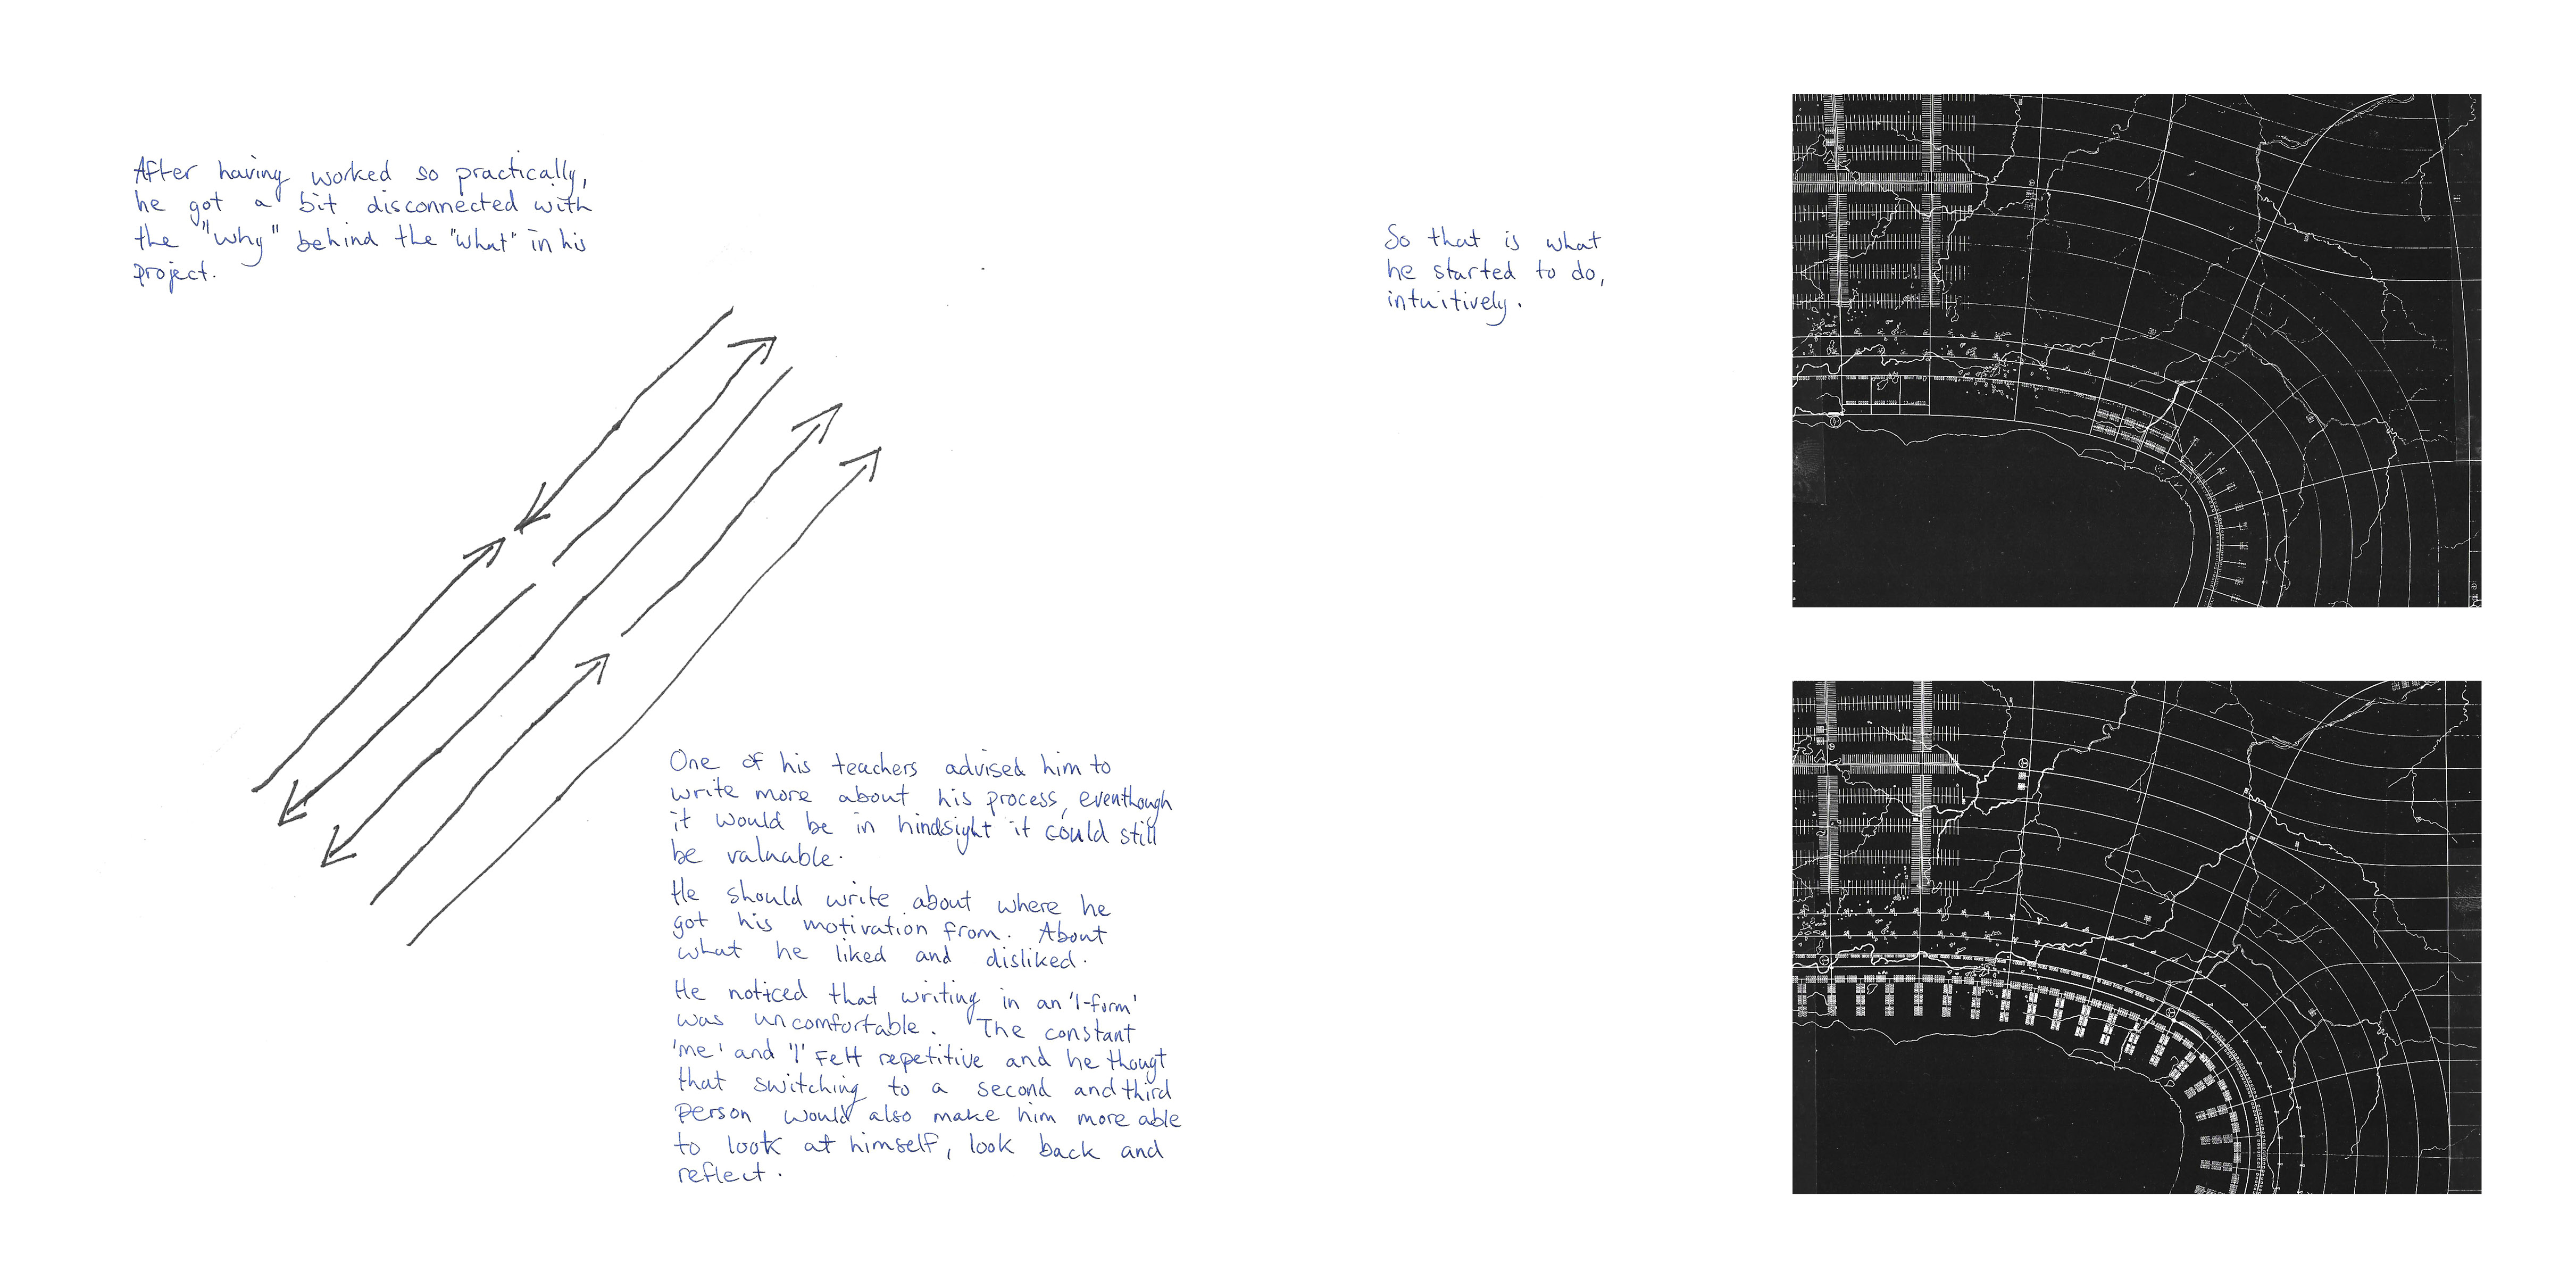 After having worked so practically,
he got a bit disconnected with
the "why" behind the "what" in his
project.
One of his teachers advised him to
write more about his process, eventhough
it would be in hindsight it could still
be valuable.
He should write about where he
got his motivation from. About
what he liked and disliked.
He noticed that writing in an 'I-form'
was uncomfortable. The constant
'me' and 'I' felt repetitive and he thougt
that switching to a second and third
person would also make him more able
to look at himself, look back and
reflect.
So that is what
he started to do,
intuitively.